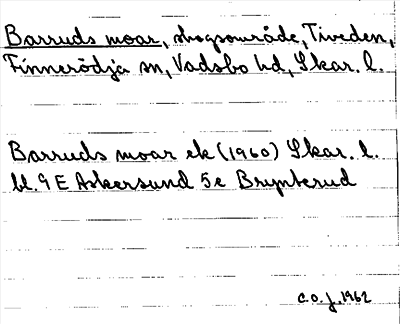 Barruds moar, skogsområde, Tiveden,
Finnerödja sn, Vadsbo hd, Skar. l.
Barruds moar ek (1960) Skar. l.
bl. 9 E Askersund 5e Brynterud
C.O.J. 1962